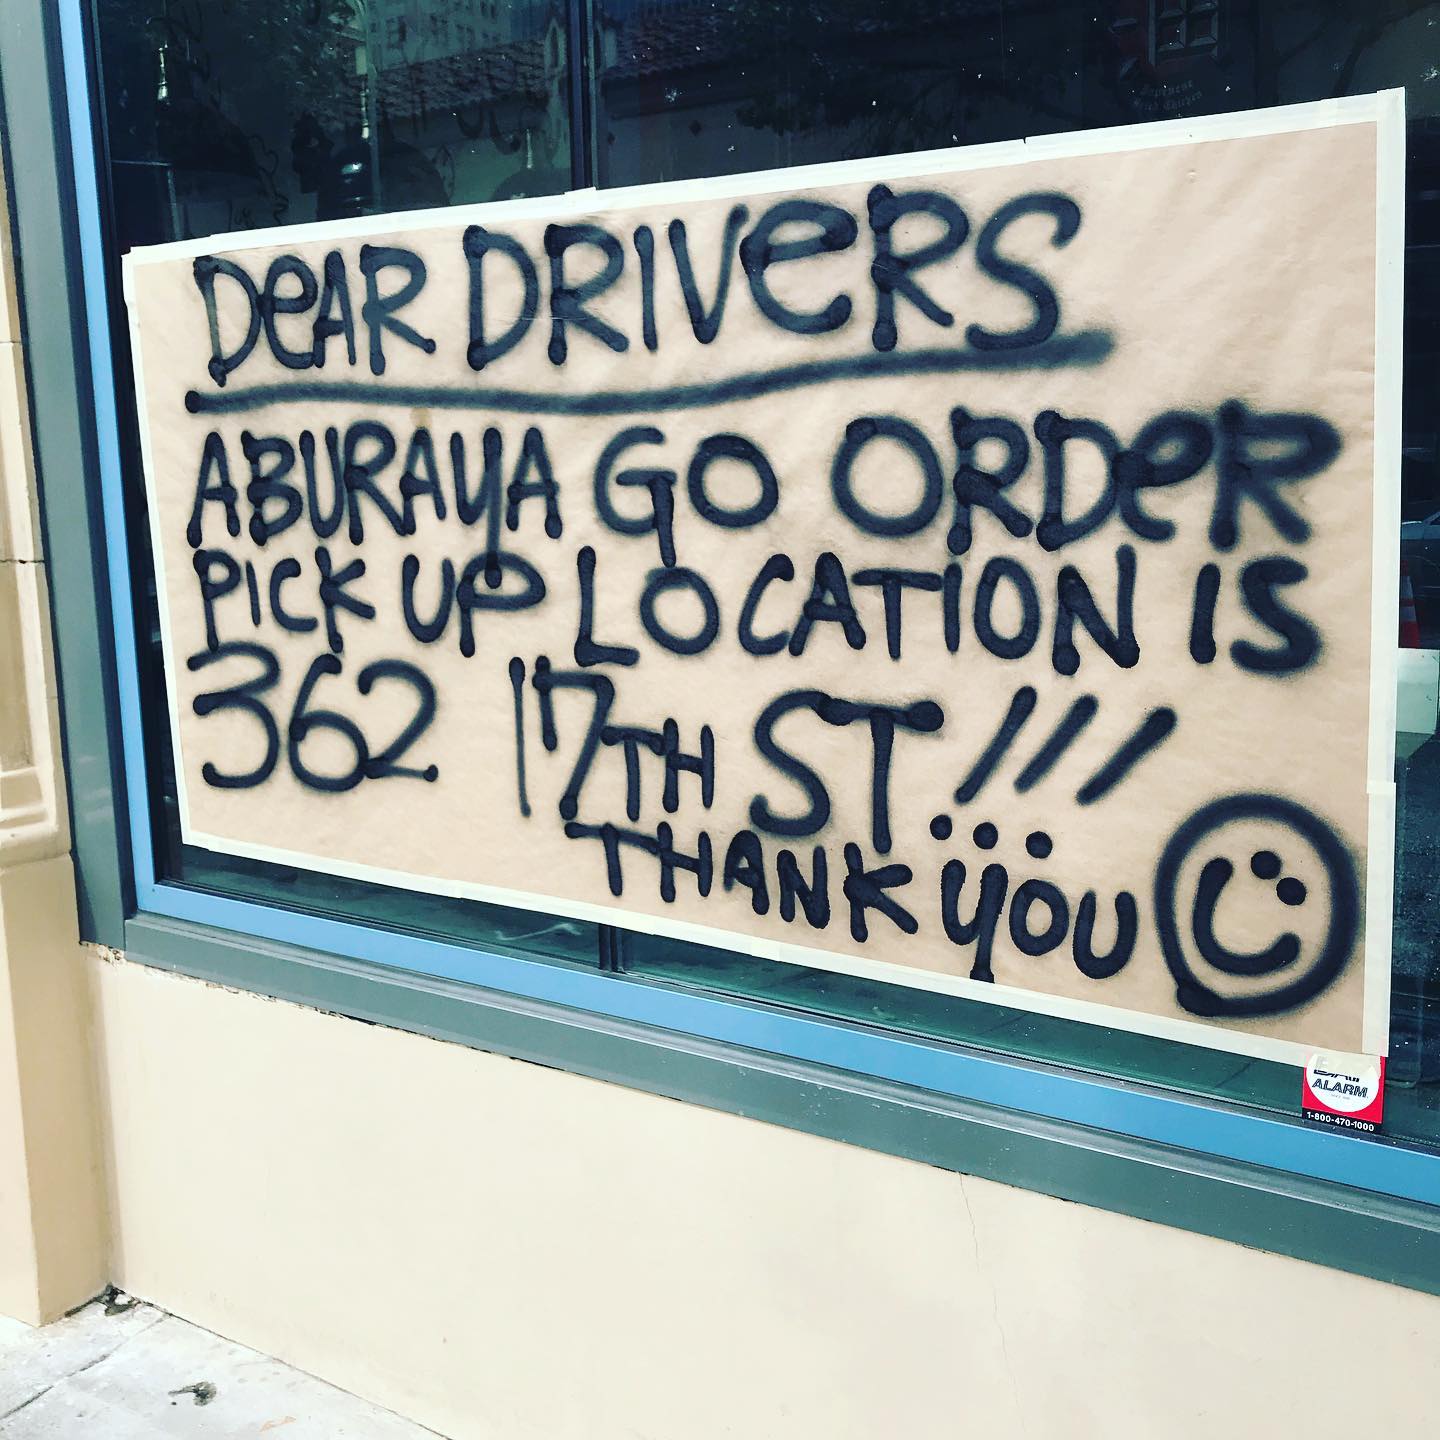 Japanese
Fried Chicken
DeAR DRIVeRS
ABURAYA GO ORDeR
PICK UP LOCATiON IS
362 17TH ST !!!
THANK YOU
ALARM
1-800-470-1000